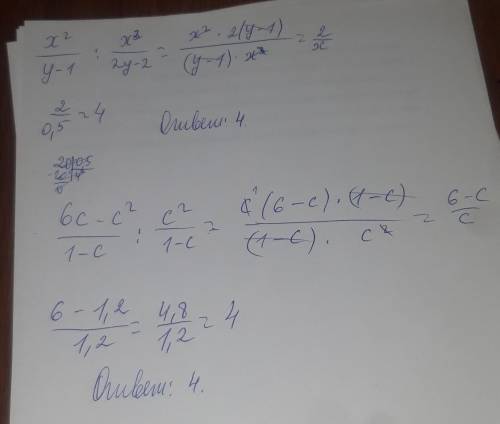 x²/(y-1) : x³/(2y-2) = (x² · 2(y-1))/((y-1) · x³) = 2/x
2/0,5 = 4 Ответ: 4.
20|05
(6c - c²)/(1-c) : c²/(1-c) = (c¹(6-c) · (1-c))/((1-c) · c²) = (6-c)/c
(6 - 1,2)/1,2 = 4,8/1,2 = 4
Ответ: 4.